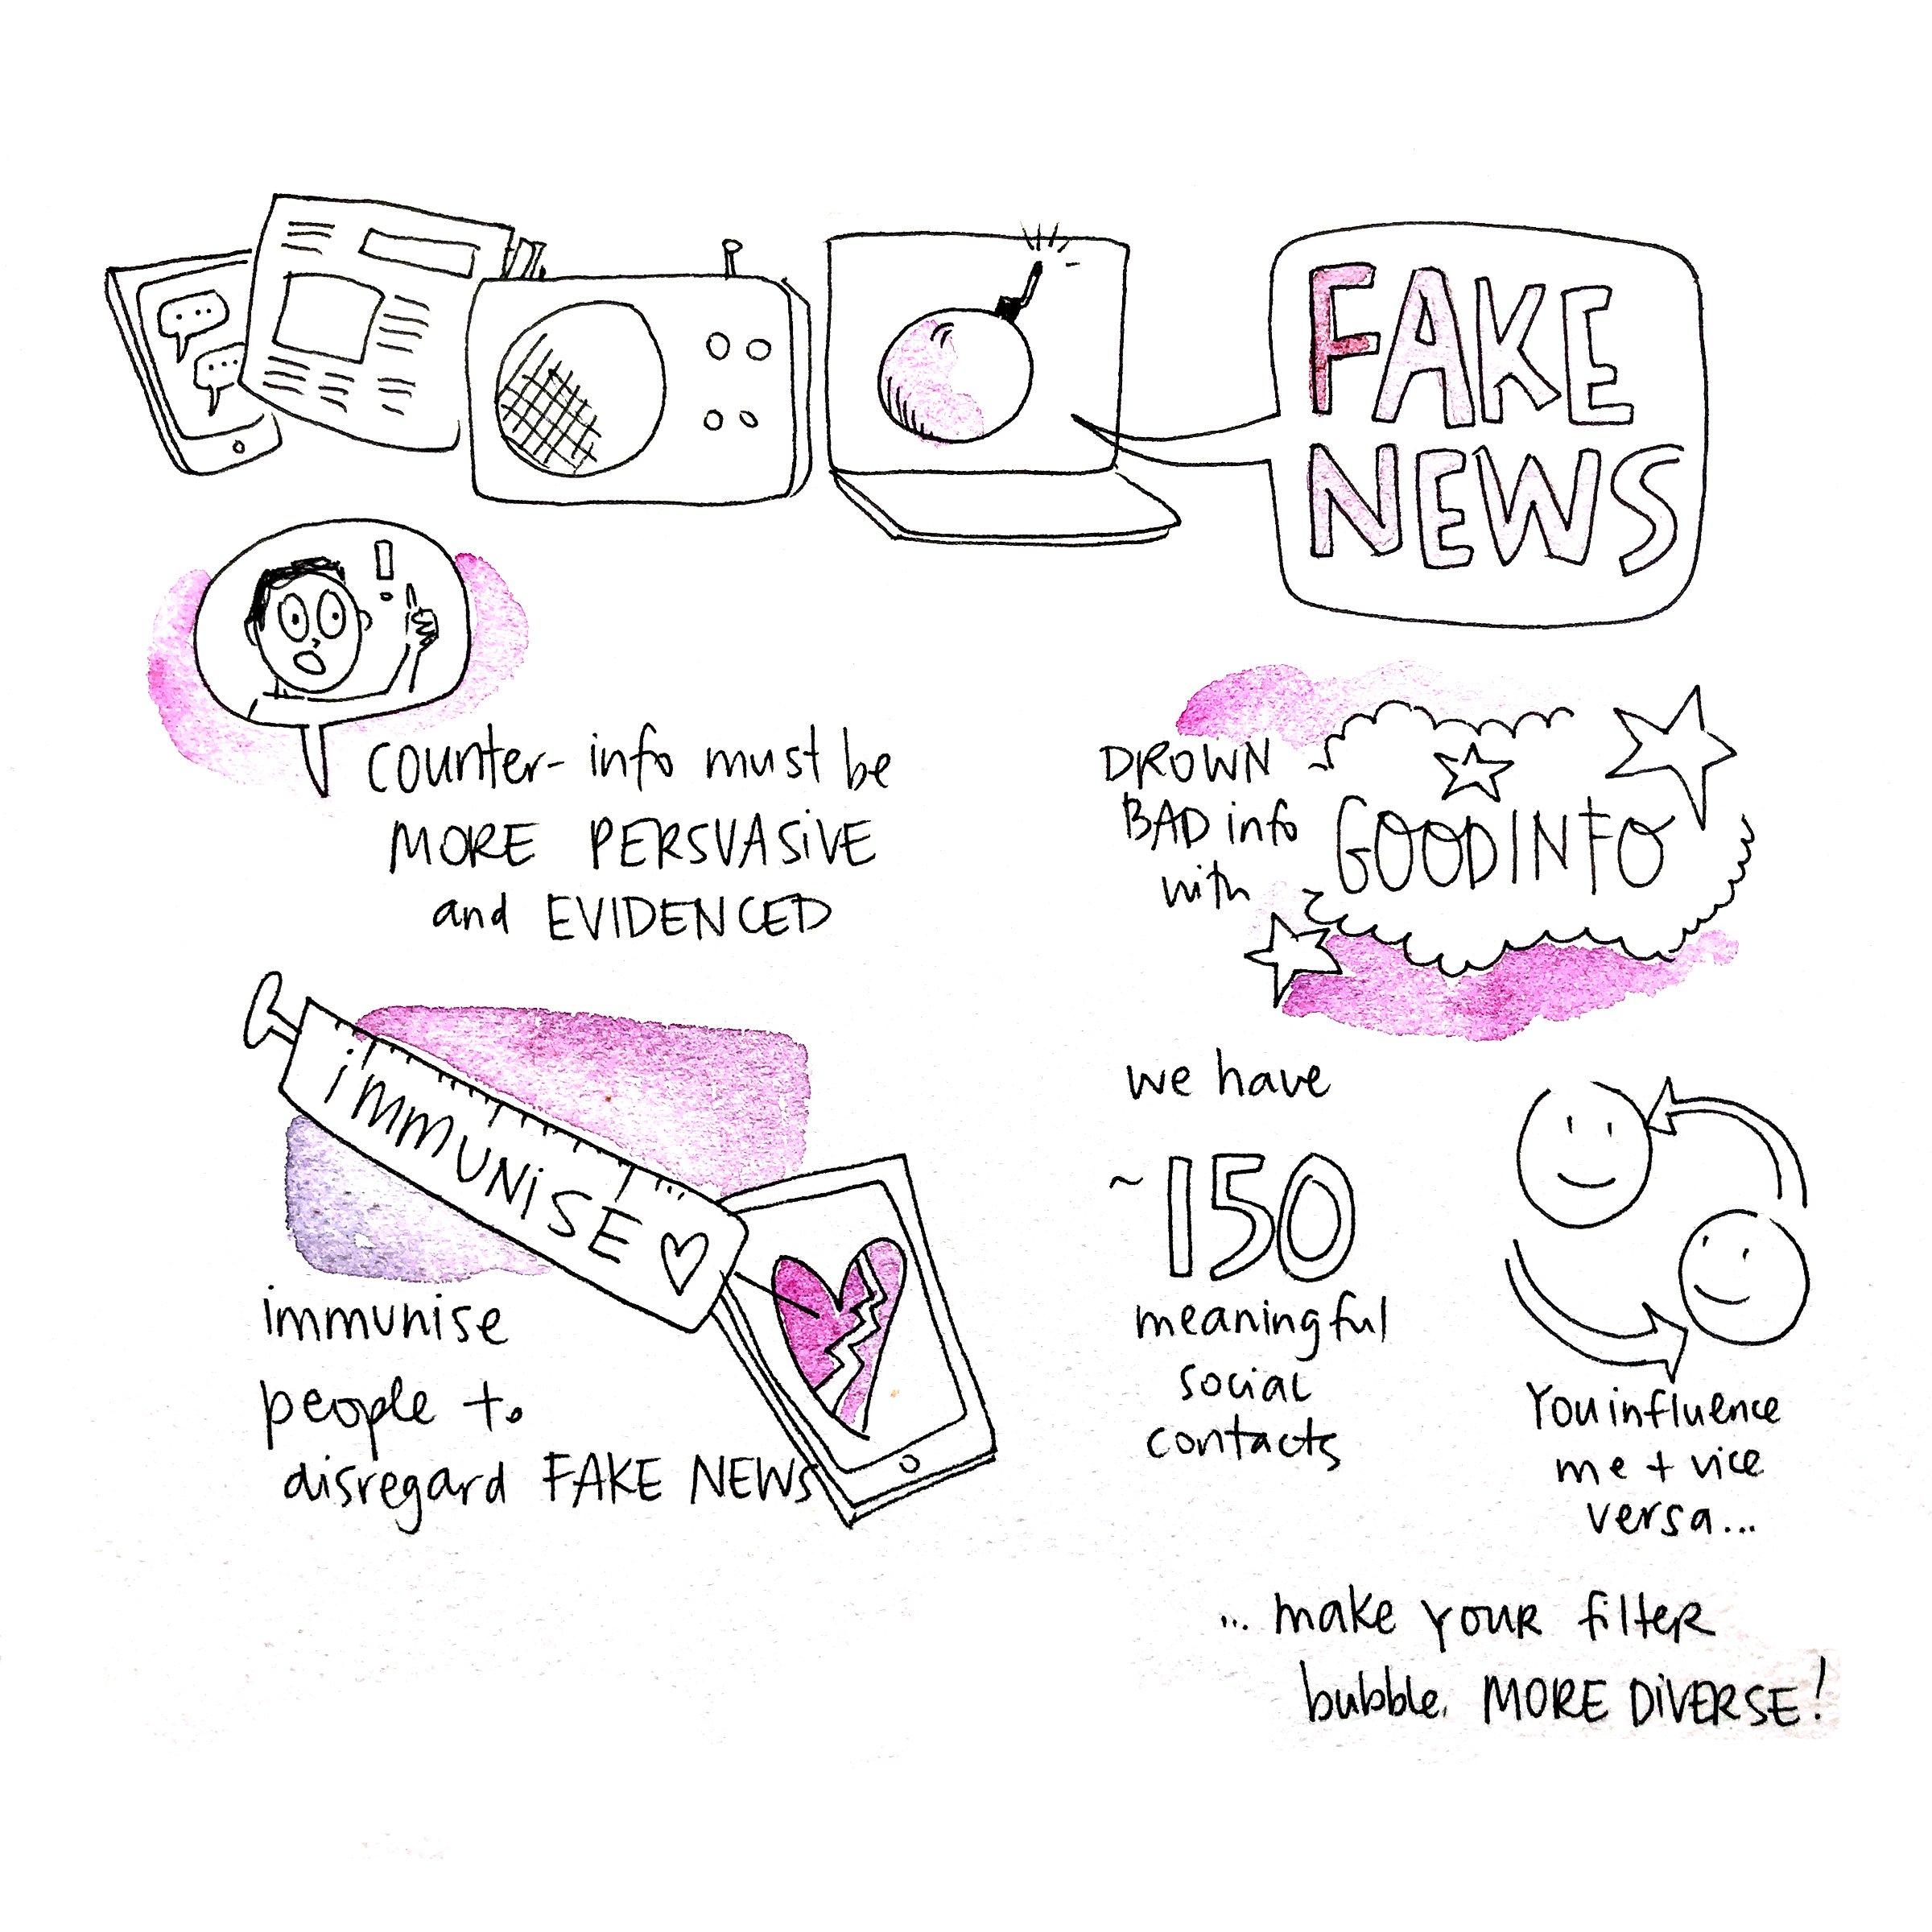 FAKE
NEWS
!
counter-info must be
MORE PERSUASIVE
and EVIDENCED
DROWN
BAD info
with
GOOD INFO
iMMUNiSE
immunise
people to
disregard FAKE NEWS
we have
~150
meaningful
social
contacts
You influence
me + vice
versa...
... make your filter
bubble. MORE DiVERSE!